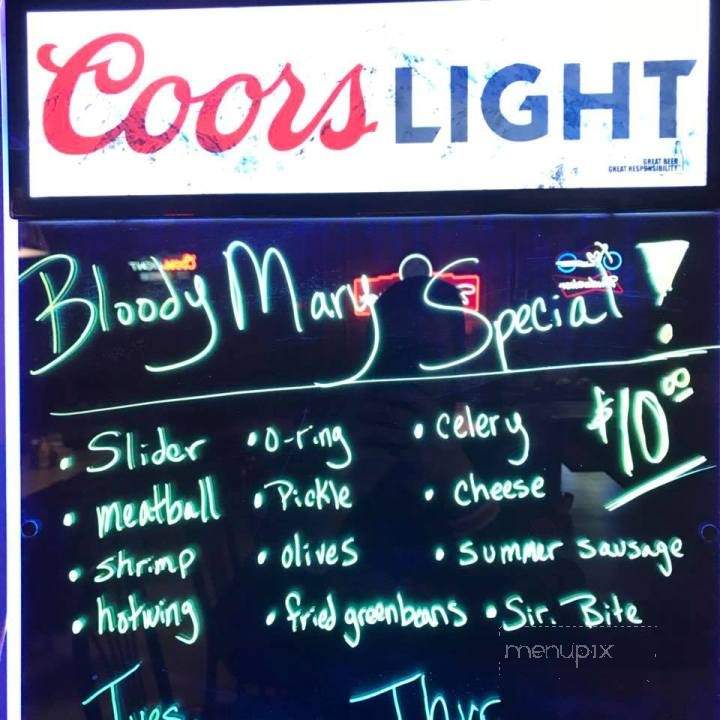 Coors LIGHT
GREAT BEER
GREAT RESPONSIBILITY
Bloody Mary Special!
$10.00
• Slider • O-ring • celery
• meatball • Pickle • cheese
• shrimp • olives • summer sausage
• hotwing • fried greenbeans • Sir. Bite
menupix
Tues Thur